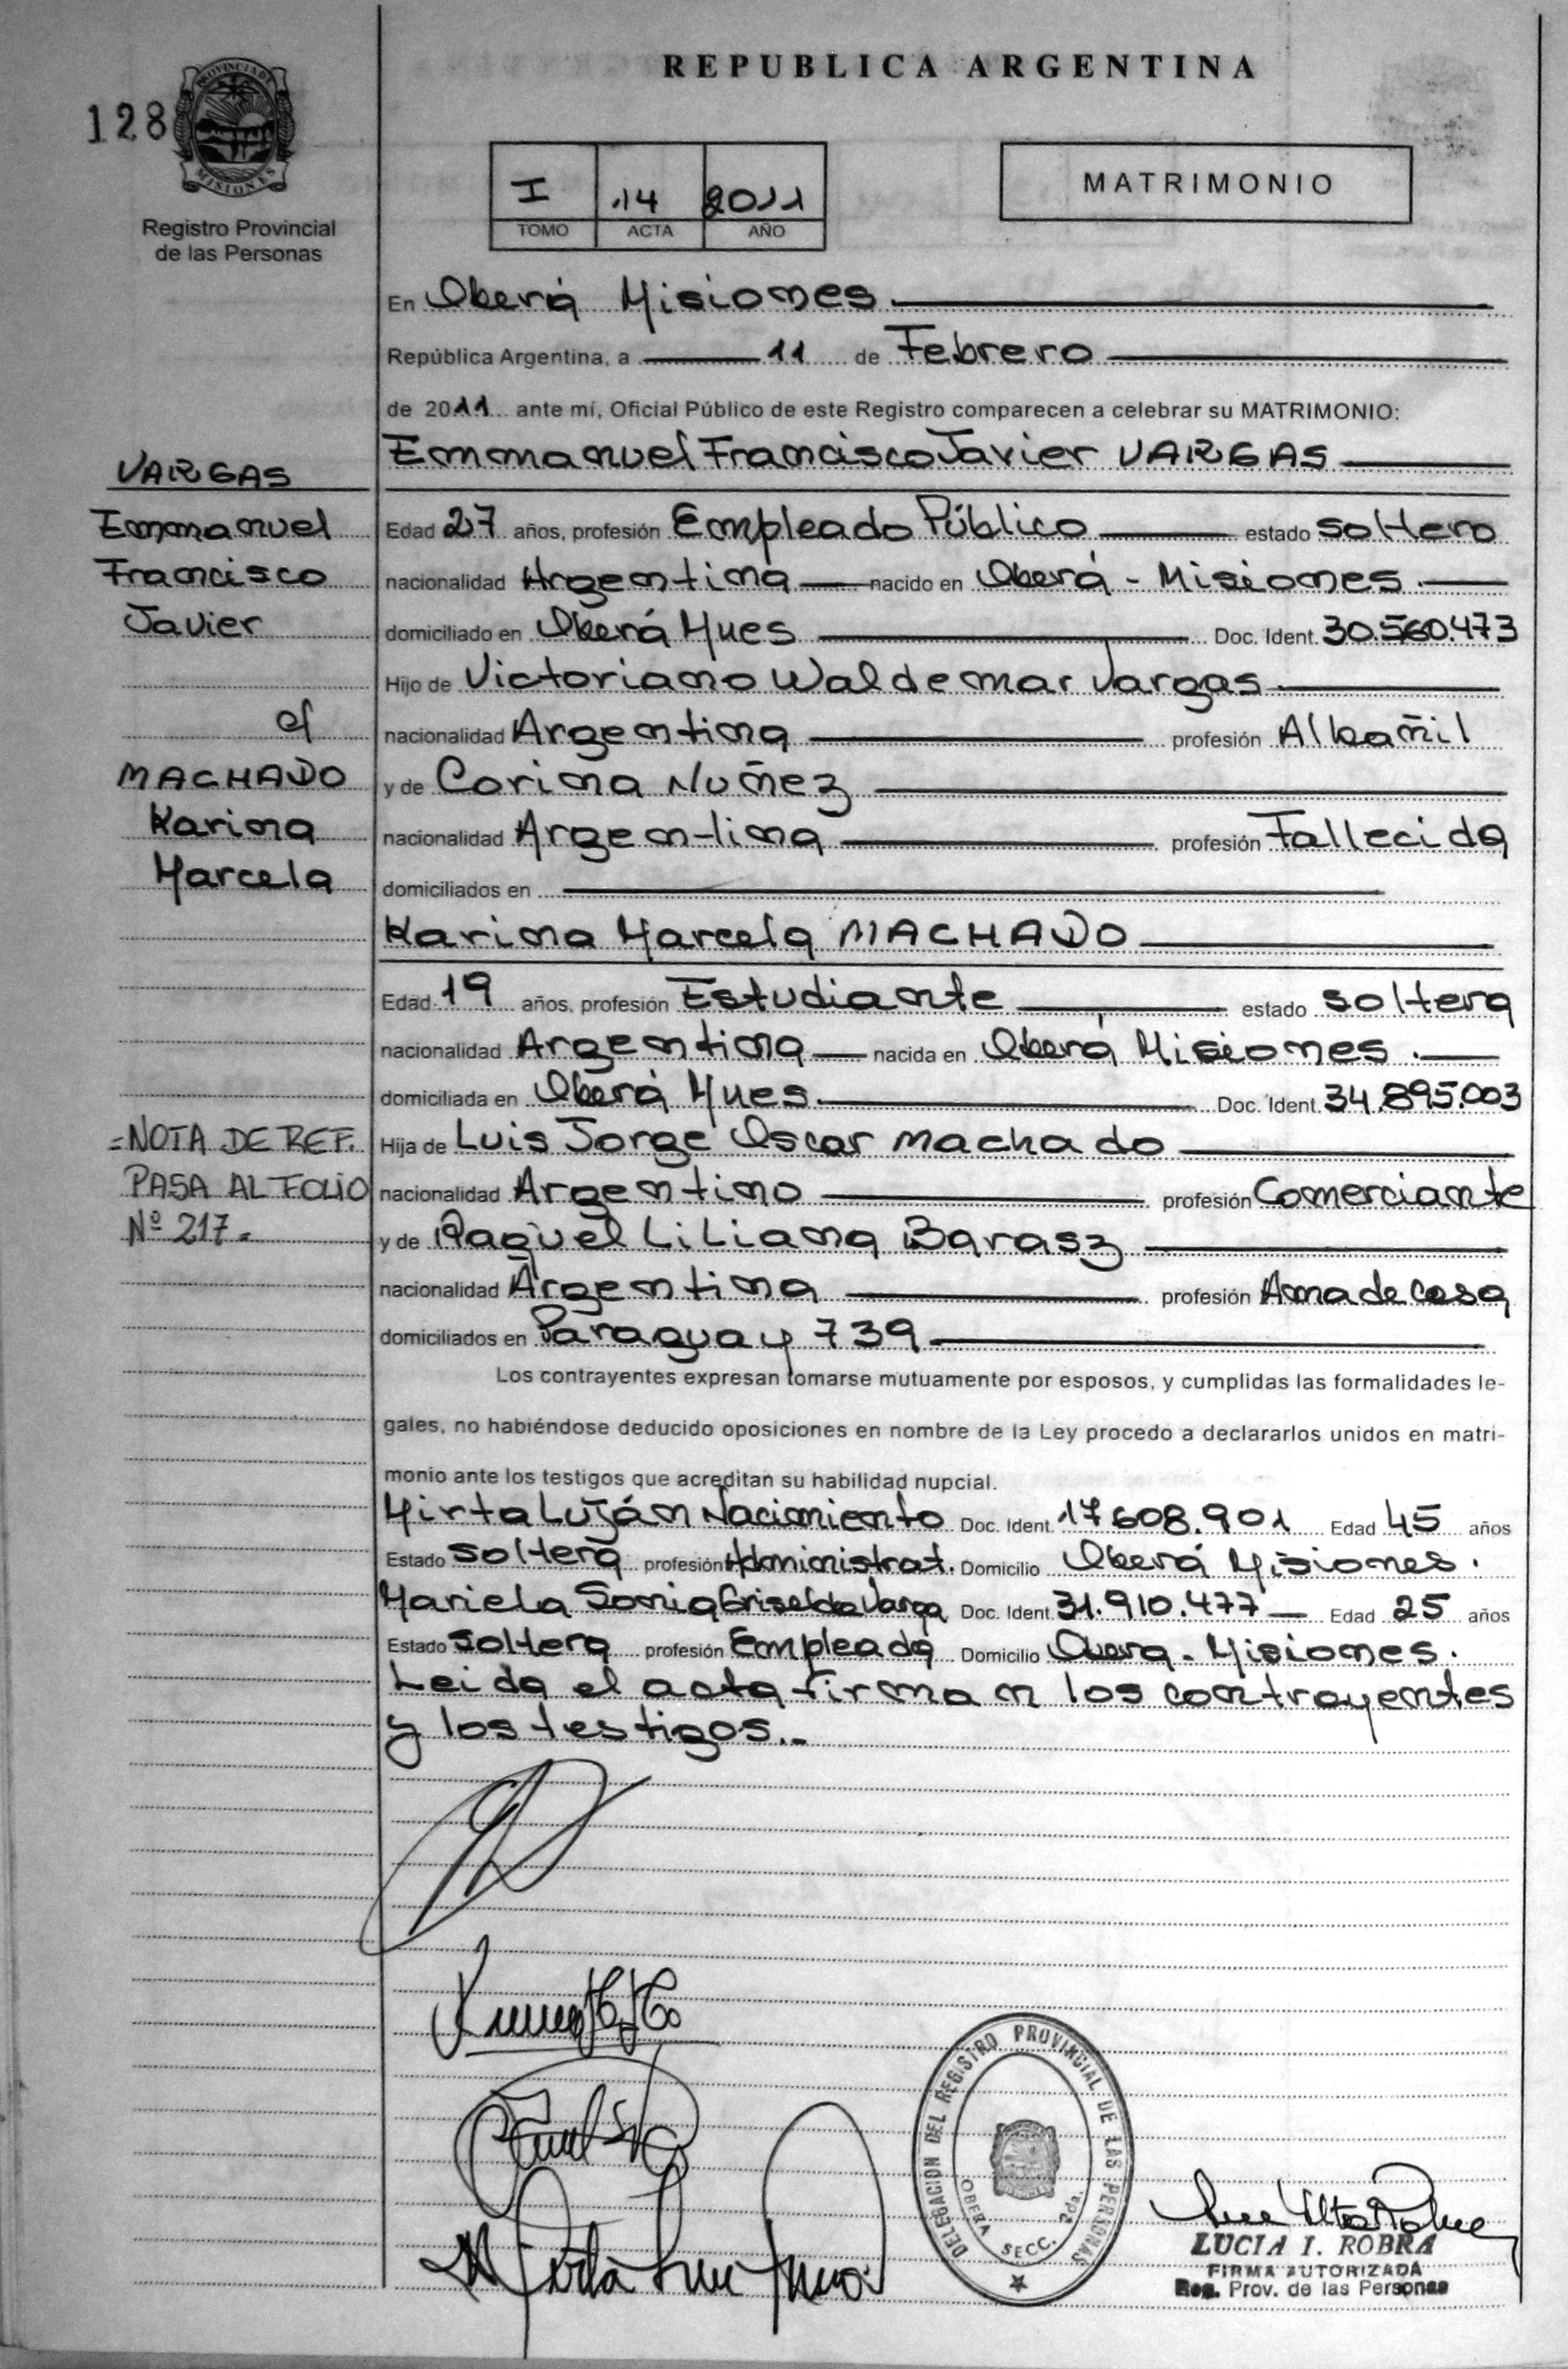 REPUBLICA ARGENTINA
128
PROVINCIA DE
MISIONES
Registro Provincial
de las Personas
I .14 2011
TOMO ACTA AÑO
MATRIMONIO
En Oberá Misiones
República Argentina, a 11 de Febrero
de 2011 ante mí, Oficial Público de este Registro comparecen a celebrar su MATRIMONIO:
Emmanuel Francisco Javier VARGAS
Edad 27 años, profesión Empleado Público estado soltero
nacionalidad Argentina nacido en Oberá - Misiones.
domiciliado en Oberá Mnes Doc. Ident. 30.560.473
Hijo de Victoriano Waldemar Vargas
nacionalidad Argentina profesión Albañil
y de Corina Nuñez
nacionalidad Argentina profesión Fallecida
domiciliados en
Karina Marcela MACHADO
Edad 19 años, profesión Estudiante estado soltera
nacionalidad Argentina nacida en Oberá Misiones.
domiciliada en Oberá Mnes. Doc. Ident. 34.895.003
Hija de Luis Jorge Oscar Machado
nacionalidad Argentino profesión Comerciante
y de Raquel Liliana Barasz
nacionalidad Argentina profesión Ama de casa
domiciliados en Paraguay 739
Los contrayentes expresan tomarse mutuamente por esposos, y cumplidas las formalidades le-
gales, no habiéndose deducido oposiciones en nombre de la Ley procedo a declararlos unidos en matri-
monio ante los testigos que acreditan su habilidad nupcial.
Mirta Luján Nacimiento Doc. Ident. 17.608.901 Edad 45 años
Estado soltera profesión Administrat. Domicilio Oberá Misiones.
Mariela Sonia Griselda Varga Doc. Ident. 31.910.477 Edad 25 años
Estado soltera profesión Empleada Domicilio Obera - Misiones.
Leida el acta firman los contrayentes
y los testigos..
VARGAS
Emmanuel
Francisco
Javier
c/
MACHADO
Karina
Marcela
=NOTA DE REF.
PASA AL FOLIO
Nº 217=
DELEGACION DEL REGISTRO PROVINCIAL DE LAS PERSONAS
OBERA SECC. 2da.
LUCIA I. ROBRA
FIRMA AUTORIZADA
Reg. Prov. de las Personas